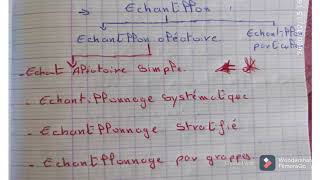 Echantillon
Echantillon aléatoire Echantillon
particulier
- Echant Aléatoire Simple.
- Echantillonnage Systématique
- Echantillonnage Stratifié
- Echantillonnage par grappes
Wondershare
Filmora